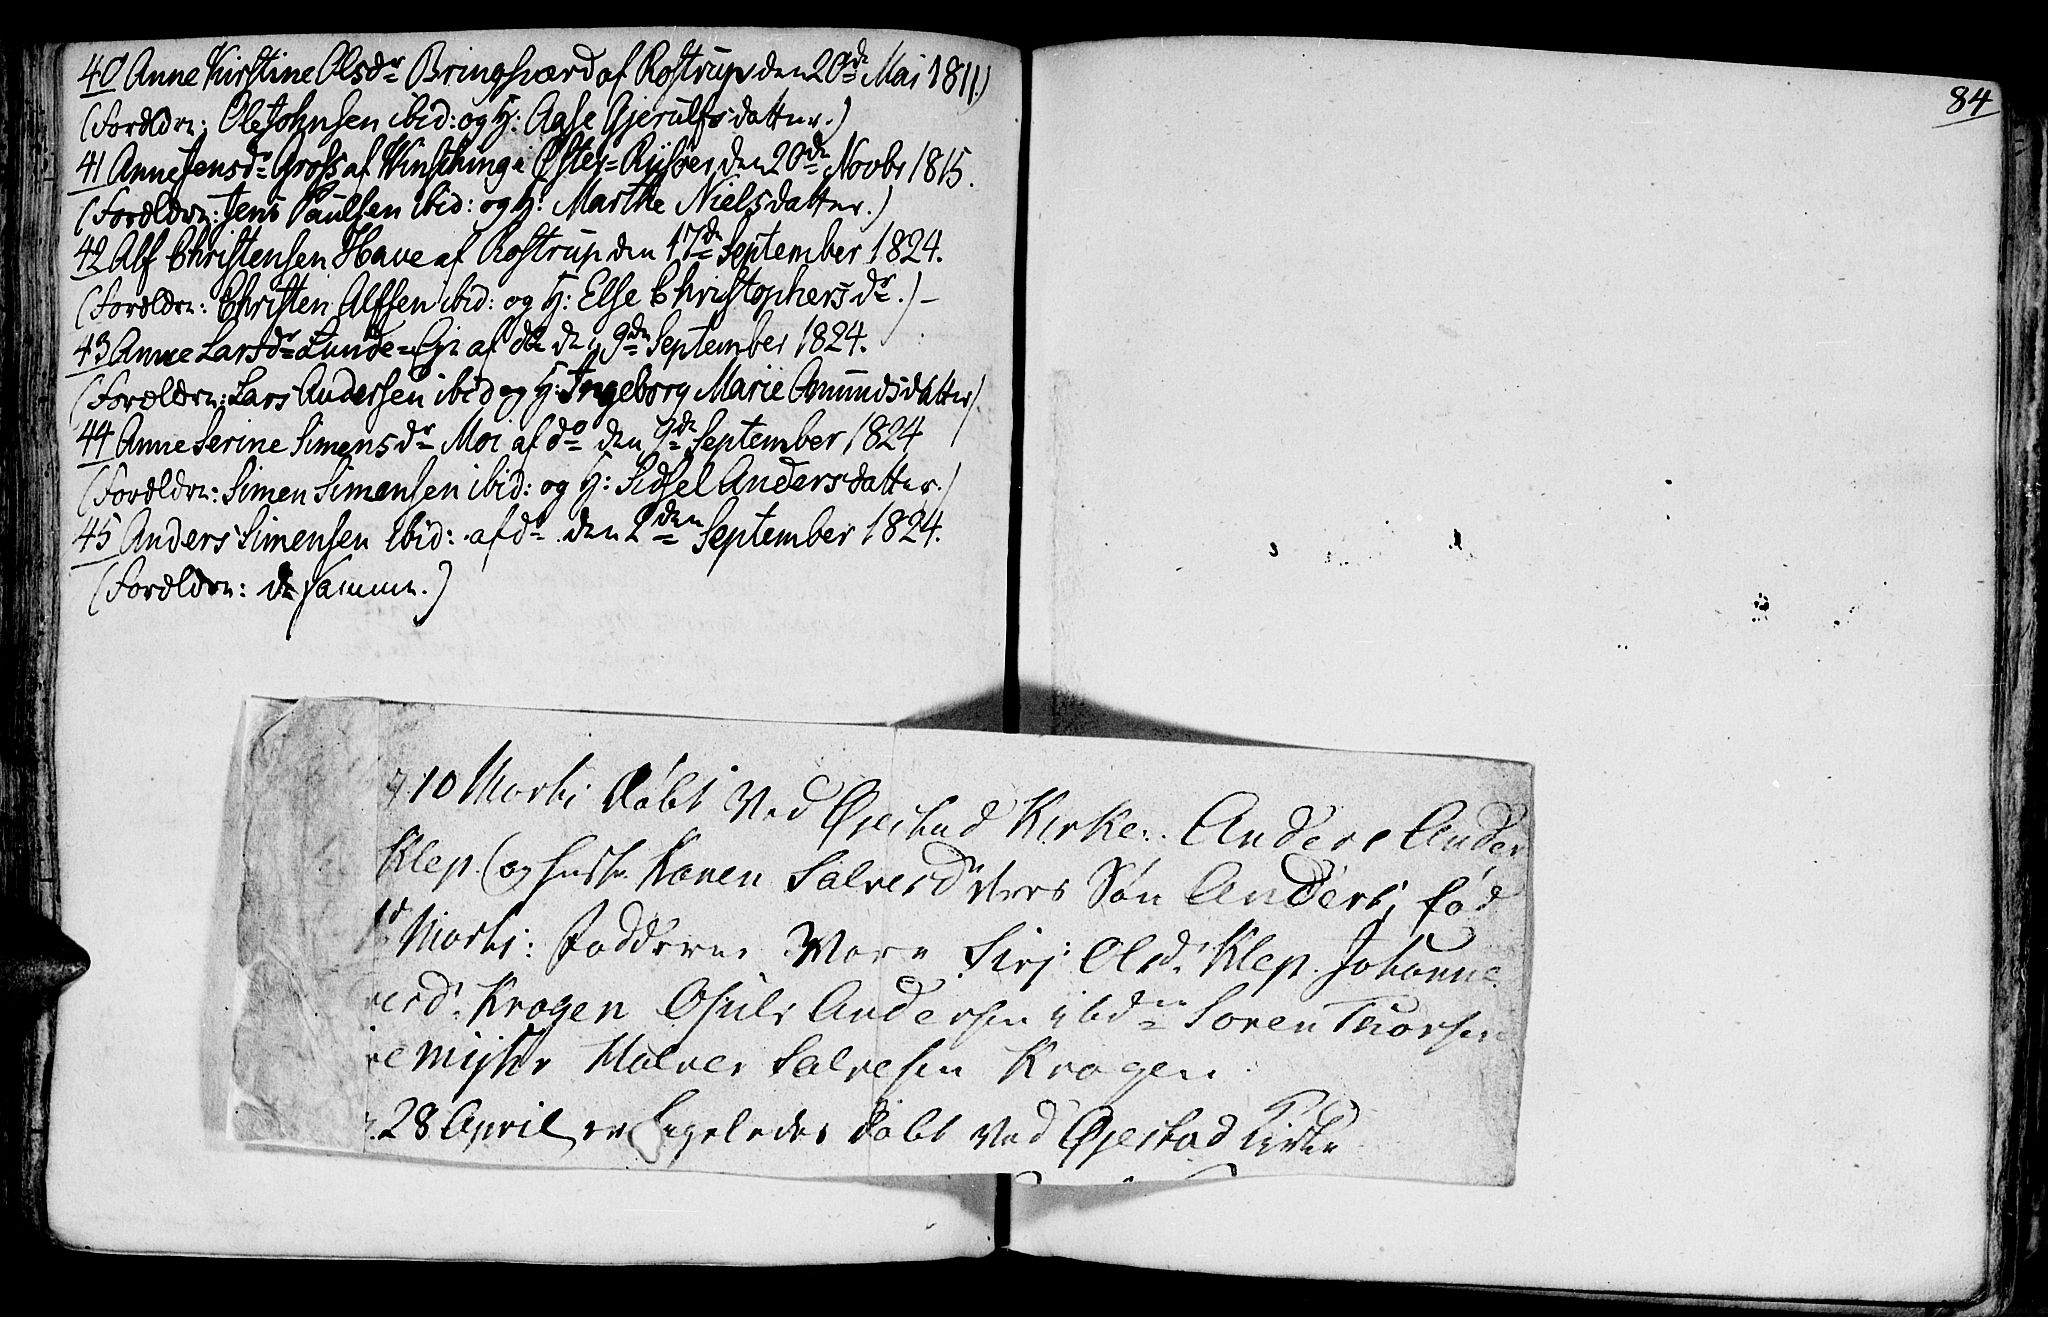 40 Anne Kirstine Olsdr Bringsværd af Rostrup den 20de Mai 1811.)
(Forældre: Ole Johnsen ibid: og H: Aase Gjerulfsdatter.)
41 Anne Jensdr Gross af Øster-Riisøer den 20de Novbr 1815.
(Forældre: Jens Paulsen ibid: og H: Marthe Nielsdatter.)
42 Alf Christensen Have af Rostrup den 17de September 1824.
(Forældre: Christen Alfsen ibid: og H: Else Christophersdr.)
43 Anne Larsdr Lunde-Eje af do den 9de September 1824.
(Forældre: Lars Andersen ibid og H: Ingeborg Marie Omundsdatter)
44 Anne Serine Simensdr Moi af do den 7de September 1824
(Forældre: Simen Simensen ibid: og H: Sidsel Andersdatter.)
45 Anders Simensen ibid: af do den 2den September 1824.
(Forældre: de samme.)
84
10 Marti døbt ved Øjestad Kirke: Anders Ander
Klep. (og Hustr Karen Salvesd Søn Anders, fød
Marti: Fadderne Vare Sirj Olsd: Klep. Johanne
Kragen Osuls Andersen ibd Soren Thorsen
Halver Salvesen Kragen.
28 April er Ligeledes døbt ved Øjestad Kirke